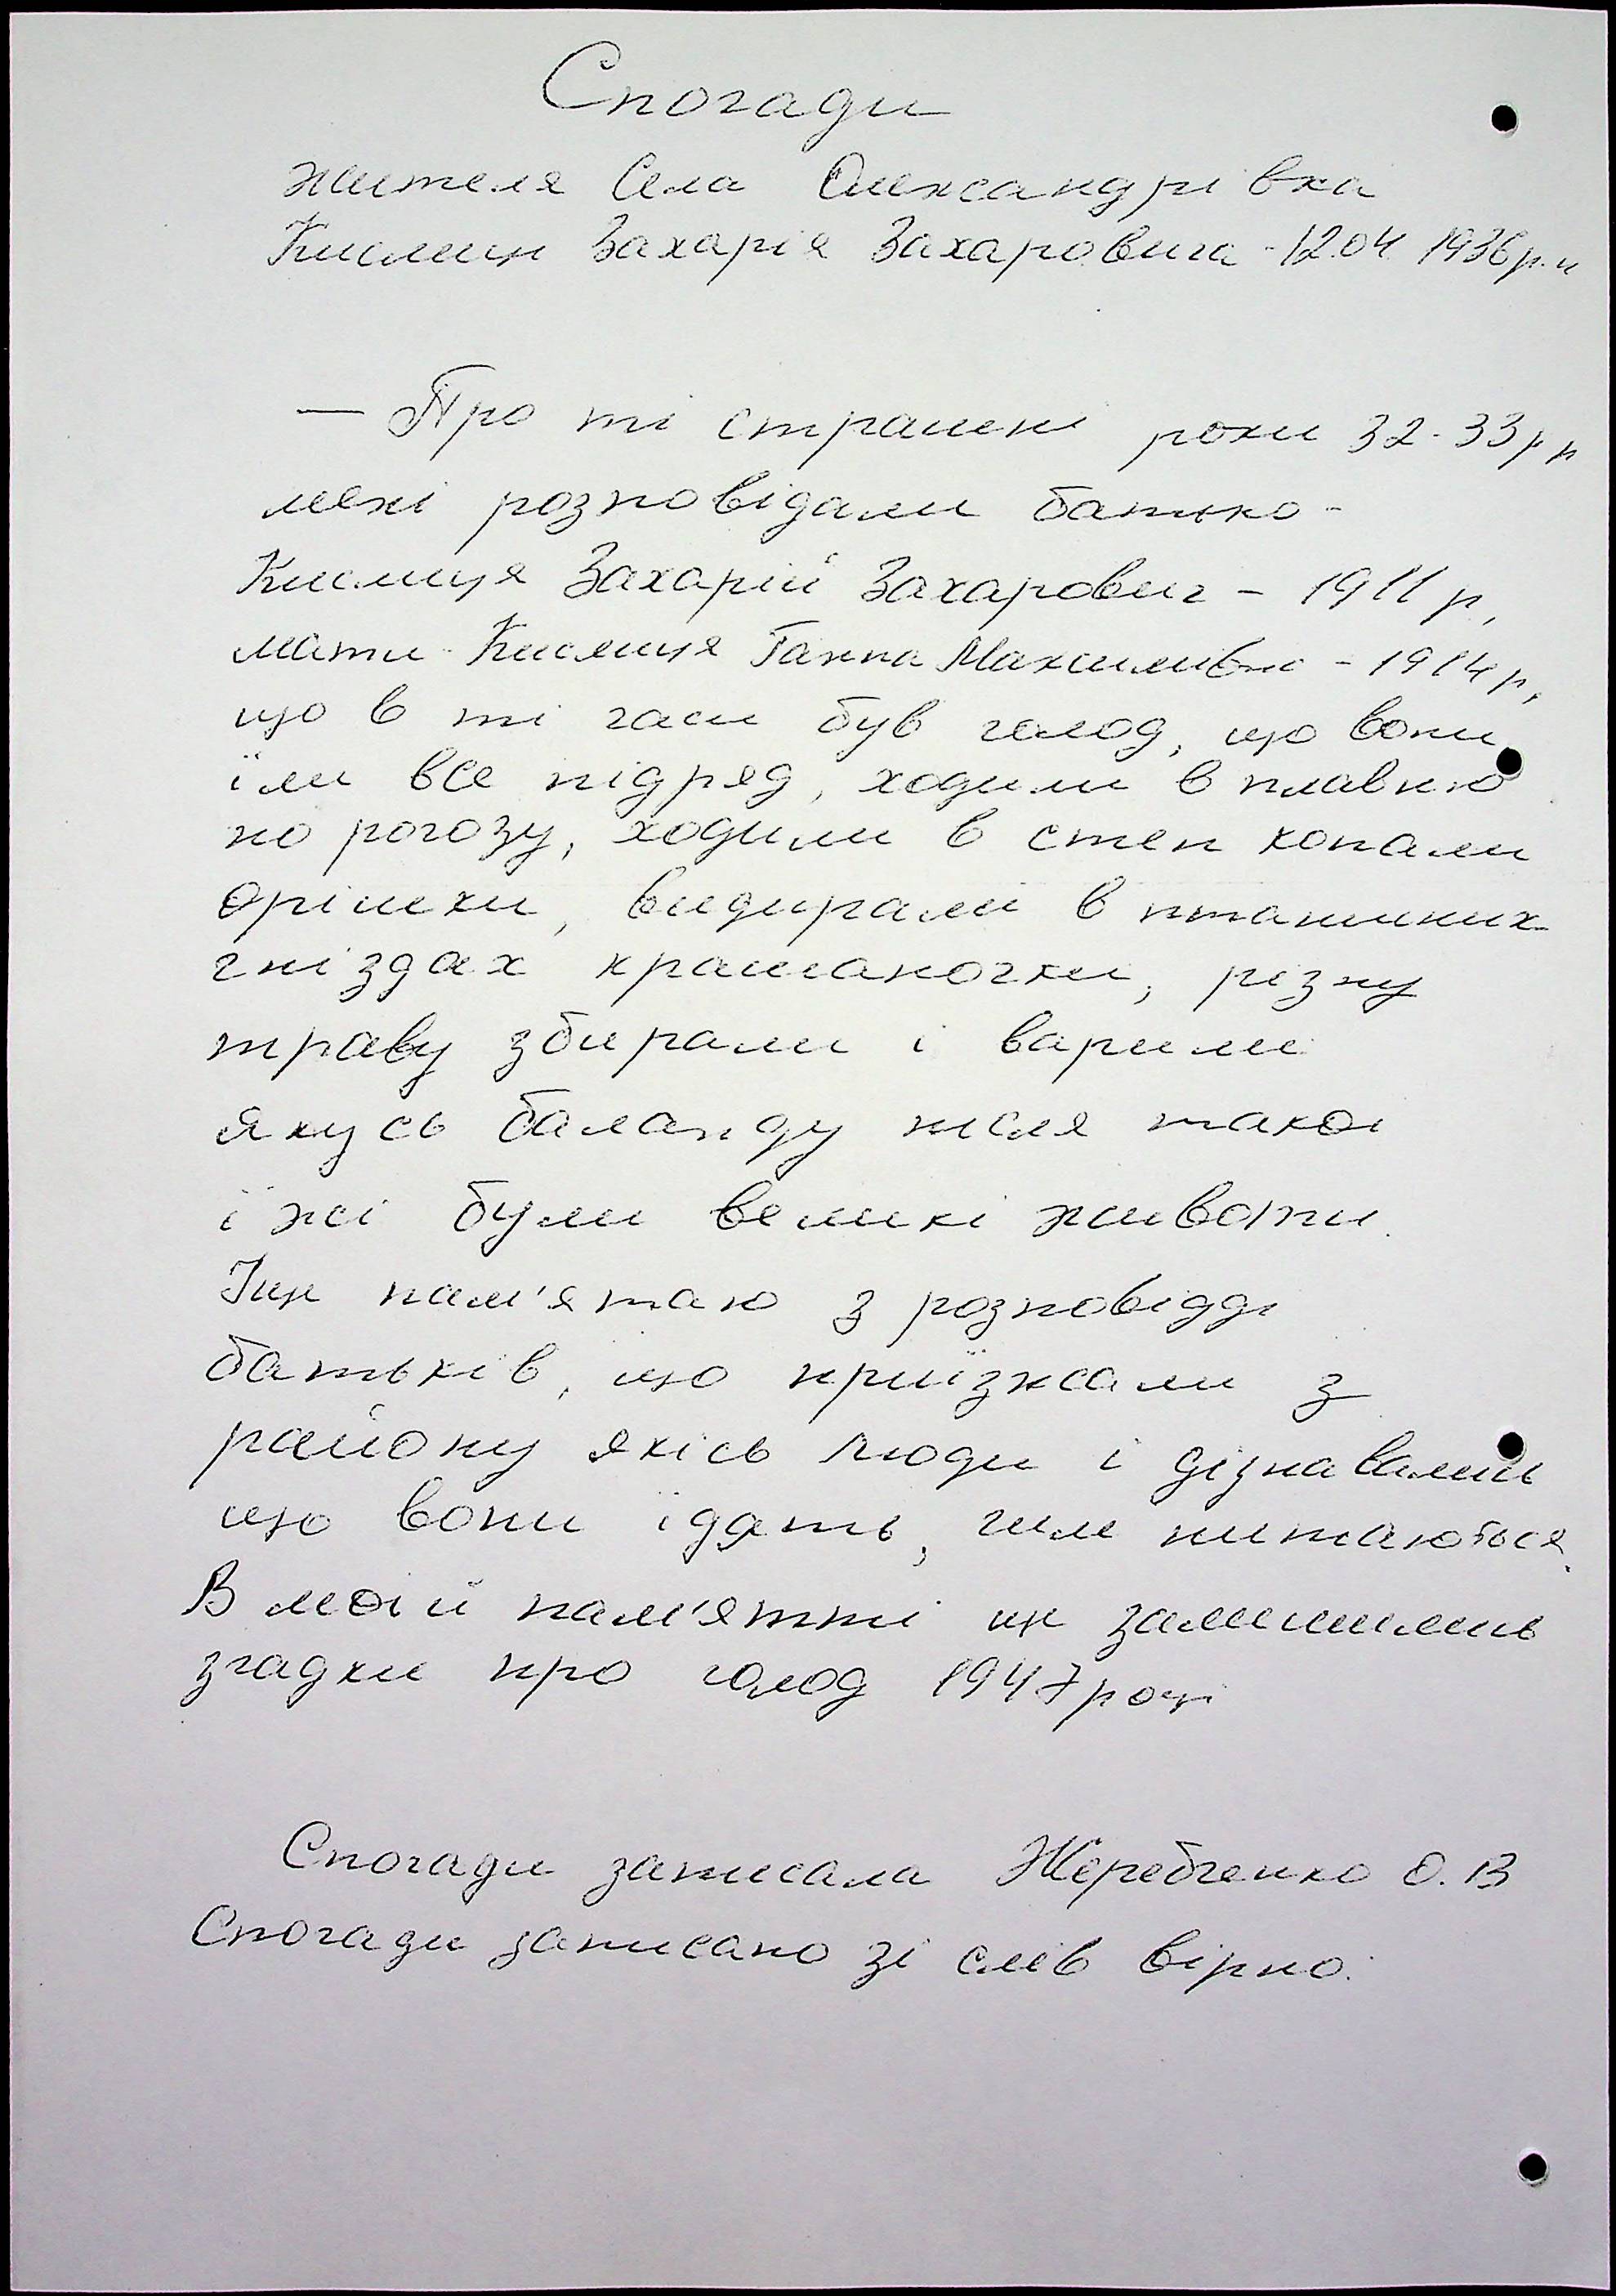 Спогади
жителя села Олександрівка
Кислиці Захарія Захаровича - 12.04 1936 р.н
— Про ті страшні роки 32-33 рр
мені розповідали батько -
Кислиця Захарій Захарович - 1911 р,
мати - Кислиця Ганна Максимівна - 1914 р,
що в ті часи був голод, що вони
їли все підряд, ходили в плавню
по рогозу, ходили в степ копали
орішки, видирали в пташиних
гніздах крашаночки, різну
траву збирали і варили
якусь баланду після такої
їжі були великі животи.
Іще пам'ятаю з розповідді
батьків, що приїзжали з
району якісь люди і дізнавались
що вони їдять, чим питаються.
В моїй пам'ятті ще залишились
згадки про голод 1947 році
Спогади записала Жеребченко О. В
Спогади записано зі слів вірно.